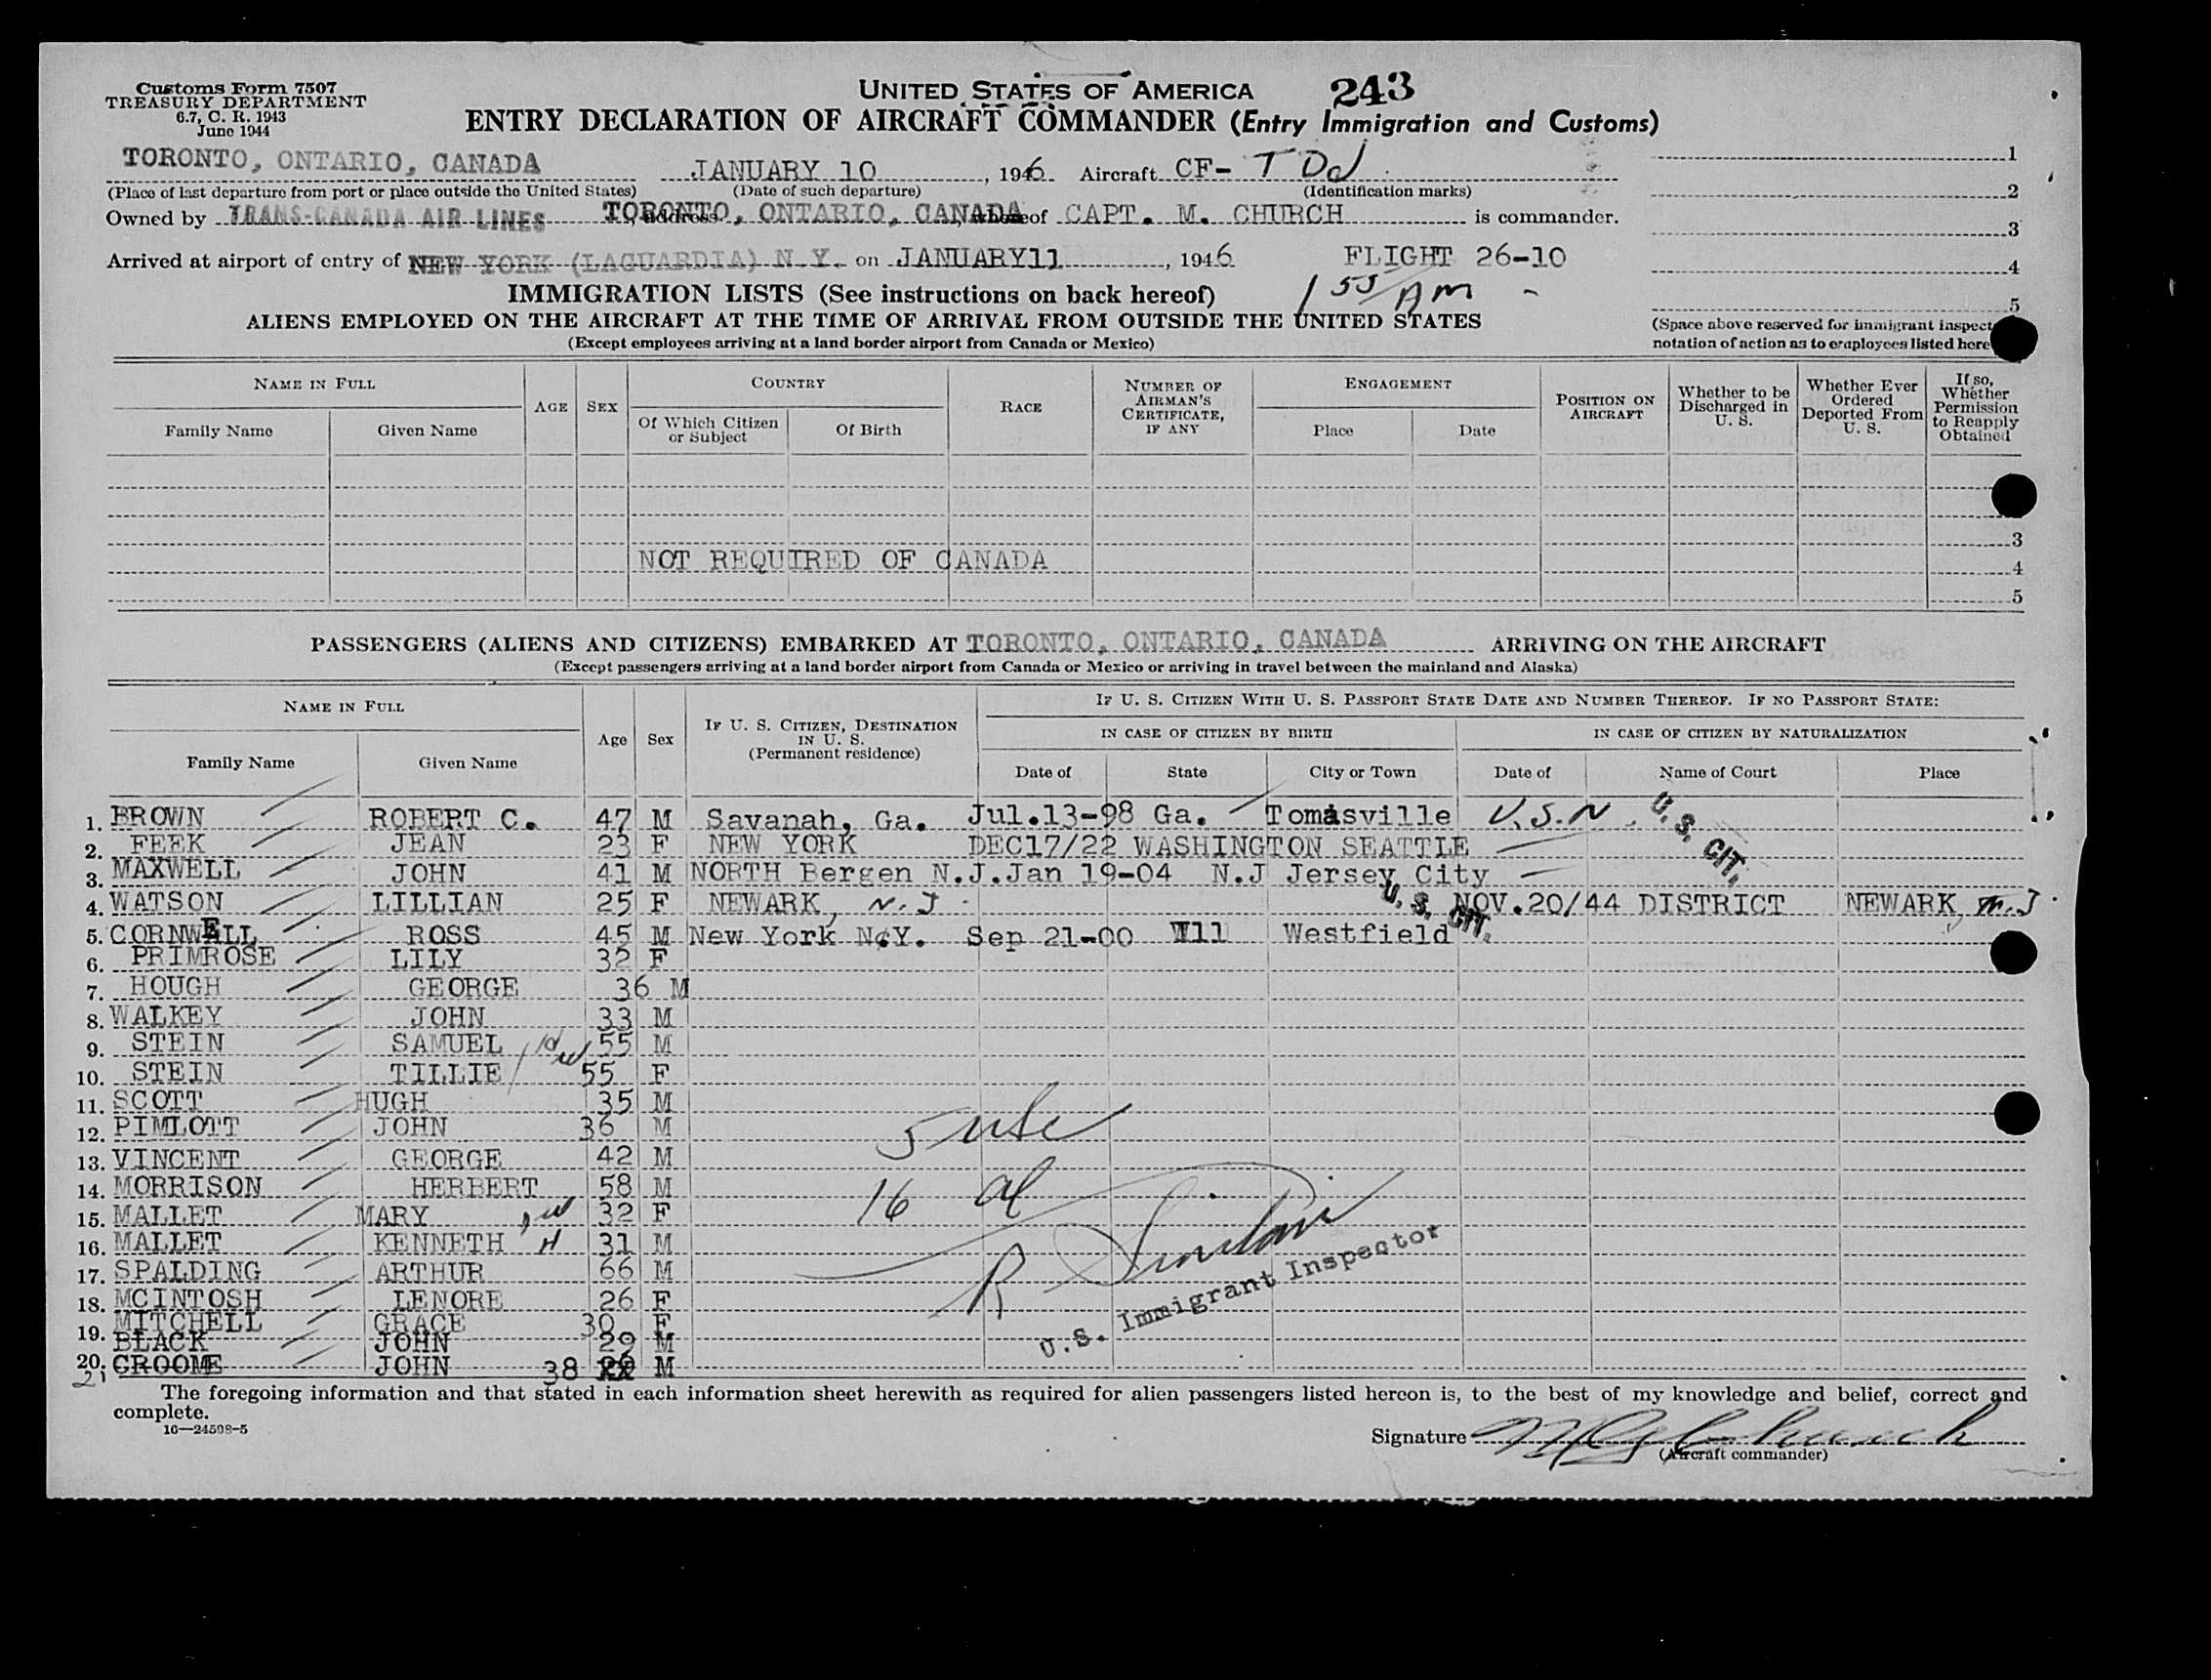 Customs Form 7507
TREASURY DEPARTMENT
6.7, C. R. 1943
June 1944
UNITED STATES OF AMERICA 243
ENTRY DECLARATION OF AIRCRAFT COMMANDER (Entry Immigration and Customs)
TORONTO, ONTARIO, CANADA JANUARY 10, 1946 Aircraft CF- TDJ 1
(Place of last departure from port or place outside the United States) (Date of such departure) (Identification marks) 2
Owned by TRANS-CANADA AIR LINES, address TORONTO, ONTARIO, CANADA, whereof CAPT. M. CHURCH is commander. 3
Arrived at airport of entry of NEW YORK (LAGUARDIA) N.Y. on JANUARY 11, 1946 FLIGHT 26-10 4
IMMIGRATION LISTS (See instructions on back hereof) 1 55/AM - 5
ALIENS EMPLOYED ON THE AIRCRAFT AT THE TIME OF ARRIVAL FROM OUTSIDE THE UNITED STATES
(Except employees arriving at a land border airport from Canada or Mexico)
(Space above reserved for immigrant inspect
notation of action as to employees listed here
NAME IN FULL AGE SEX COUNTRY RACE NUMBER OF AIRMAN'S CERTIFICATE, IF ANY ENGAGEMENT POSITION ON AIRCRAFT Whether to be Discharged in U. S. Whether Ever Ordered Deported From U. S. If so, Whether Permission to Reapply Obtained
Family Name Given Name Of Which Citizen or Subject Of Birth Place Date
3
NOT REQUIRED OF CANADA 4
5
PASSENGERS (ALIENS AND CITIZENS) EMBARKED AT TORONTO, ONTARIO, CANADA ARRIVING ON THE AIRCRAFT
(Except passengers arriving at a land border airport from Canada or Mexico or arriving in travel between the mainland and Alaska)
NAME IN FULL Age Sex IF U. S. CITIZEN, DESTINATION IN U. S. (Permanent residence) IF U. S. CITIZEN WITH U. S. PASSPORT STATE DATE AND NUMBER THEREOF. IF NO PASSPORT STATE:
IN CASE OF CITIZEN BY BIRTH IN CASE OF CITIZEN BY NATURALIZATION
Family Name Given Name Date of State City or Town Date of Name of Court Place
1. BROWN ROBERT C. 47 M Savanah, Ga. Jul.13-98 Ga. Tomasville U.S.N. U. S. CIT.
2. FEEK JEAN 23 F NEW YORK DEC17/22 WASHINGTON SEATTLE
3. MAXWELL JOHN 41 M NORTH Bergen N.J. Jan 19-04 N.J Jersey City
4. WATSON LILLIAN 25 F NEWARK, N.J. U. S. CIT. NOV.20/44 DISTRICT NEWARK, N.J.
5. CORNWELL ROSS 45 M New York N.Y. Sep 21-00 Ill Westfield
6. PRIMROSE LILY 32 F
7. HOUGH GEORGE 36 M
8. WALKEY JOHN 33 M
9. STEIN SAMUEL H 55 M
10. STEIN TILLIE W 55 F
11. SCOTT HUGH 35 M
12. PIMLOTT JOHN 36 M
5 USC
13. VINCENT GEORGE 42 M
14. MORRISON HERBERT 58 M
16 al
15. MALLET MARY W 32 F
16. MALLET KENNETH H 31 M
17. SPALDING ARTHUR 66 M
18. MCINTOSH LENORE 26 F
U.S. Immigrant Inspector
19. MITCHELL GRACE 30 F
BLACK JOHN 29 M
20. CROOME JOHN 38 M
21
The foregoing information and that stated in each information sheet herewith as required for alien passengers listed hereon is, to the best of my knowledge and belief, correct and
complete.
16—24598-5
Signature M Church
(Aircraft commander)